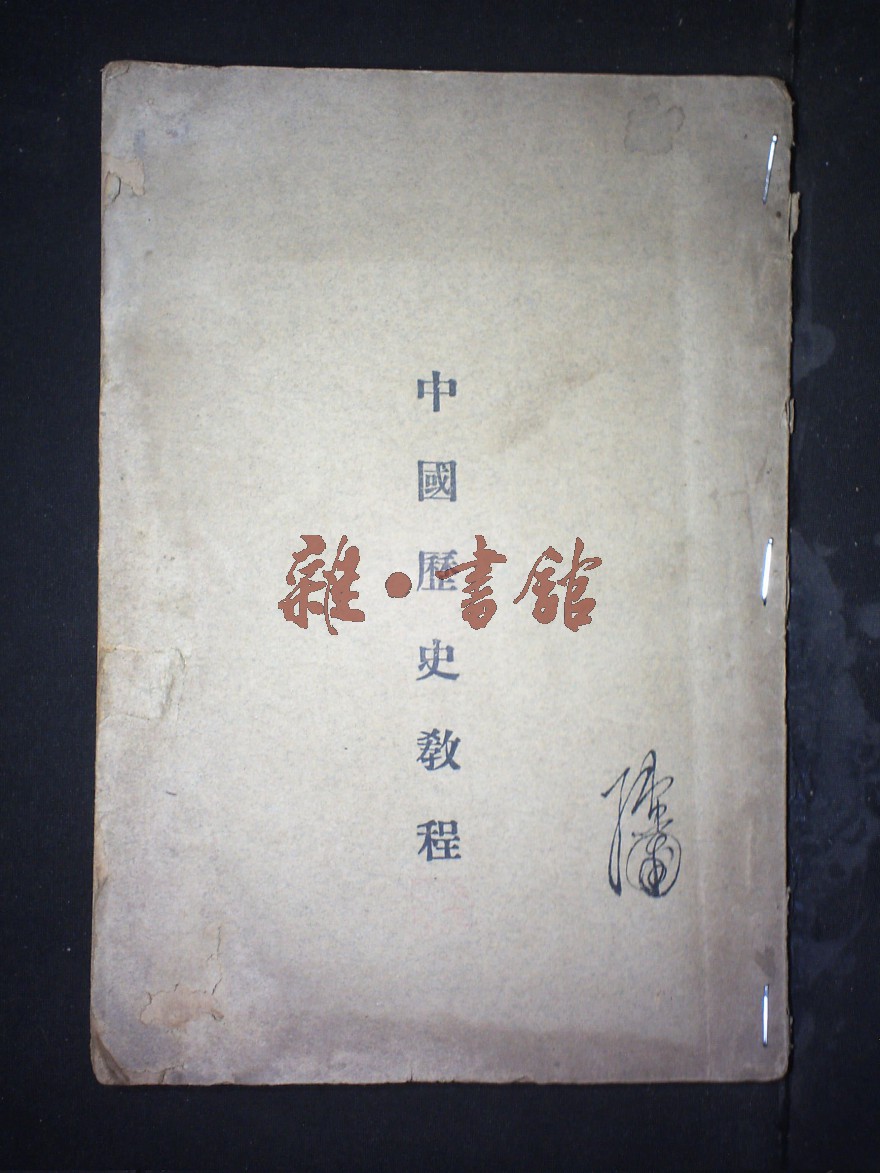 中國歷史教程
雜·書館